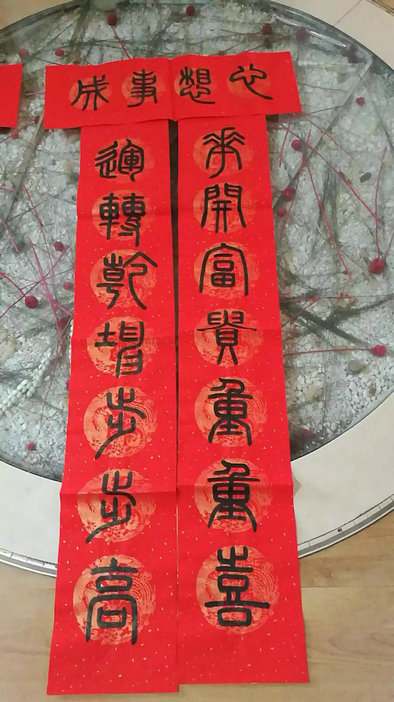 心想事成
花開富貴重重喜
運轉乾坤步步高